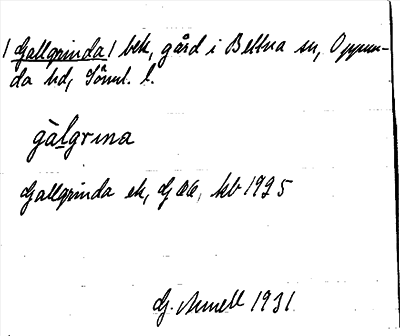 / Gallgrinda / bek, gård i Bettna sn, Oppun-
da hd, Söml. l.
gàlgrına
Gallgrinda ek, G Öä, kb 1925
G. 1931